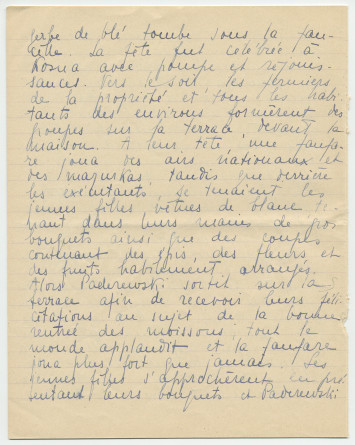 gerbe de blé tombe sous la fau-
cille. La fête fut célébrée à
Kosna avec pompe et rejouis-
sances. Vers le soir les fermiers
de la propriété et tous les habi-
tants des environs formèrent des
groupes sur la terrace devant la
maison. A leur tête, une fanfa-
re joua des airs nationaux et
des mazurkas tandis que derrière
les exécutants se tenaient les
jeunes filles vêtues de blanc te-
nant dans leurs mains de gros
bouquets ainsi que des coupes
contenant des épis, des fleurs et
des fruits habilement arrangés.
Alors Paderewski sortit sur la
terrace afin de recevoir leurs féli-
citations au sujet de la bonne
rentrée des moissons; tout le
monde applaudit et la fanfare
joua plus fort que jamais. Les
jeunes filles s'approchèrent en pré-
sentant leurs bouquets et Paderewski